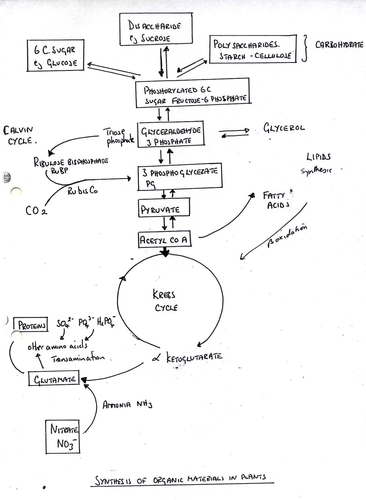 DISACCHARIDE
eg SUCROSE
6 C. SUGAR
eg GLUCOSE
POLYSACCHARIDES.
STARCH - CELLULOSE
CARBOHYDRATE
PHOSHORYLATED 6C
SUGAR FRUCTOSE-6 PHOSPHATE
CALVIN
CYCLE.
Triose
phosphate
GLYCERALDAHYDE
3 PHOSPHATE
GLYCEROL
RIBULOSE BISPHOSPHATE
RuBP
RUBISCO
CO2
3 PHOSPHOGLYCERATE
PG
LIPIDS
Synthesis
PYRUVATE
FATTY
ACIDS
ACETYL CO A
βoxidation
KREBS
CYCLE
PROTEINS
SO4²⁻ PO4³⁻ H2PO4⁻
other amino acids
Transamination.
α KETOGLUTARATE
GLUTAMATE
AMMONIA NH3
NITRATE
NO3⁻
SYNTHESIS OF ORGANIC MATERIALS IN PLANTS